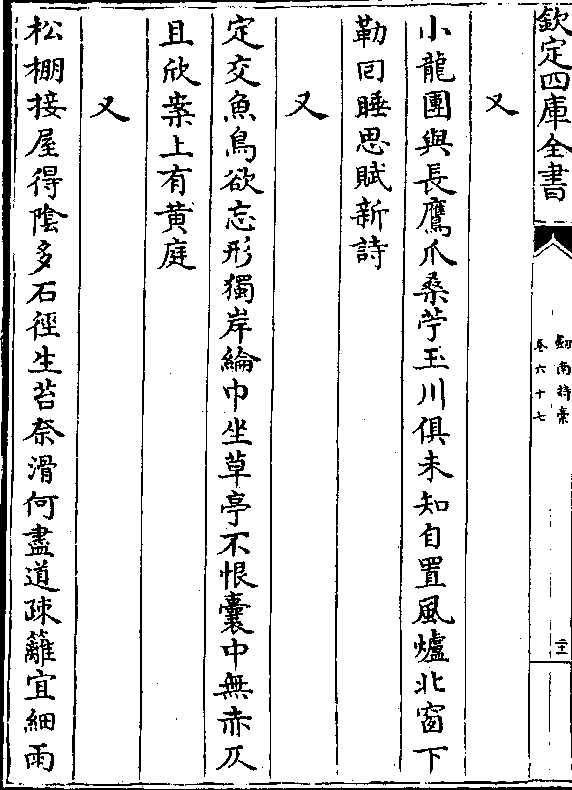 欽定四庫全書
劒南詩稾
卷六十七
二十一
又
小龍團與長鷹爪桑苧玉川俱未知自置風爐北窗下
勒囘睡思賦新詩
又
定交魚鳥欲忘形獨岸綸巾坐草亭不恨囊中無赤仄
且欣案上有黄庭
又
松棚接屋得陰多石徑生苔奈滑何盡道疎籬宜細雨